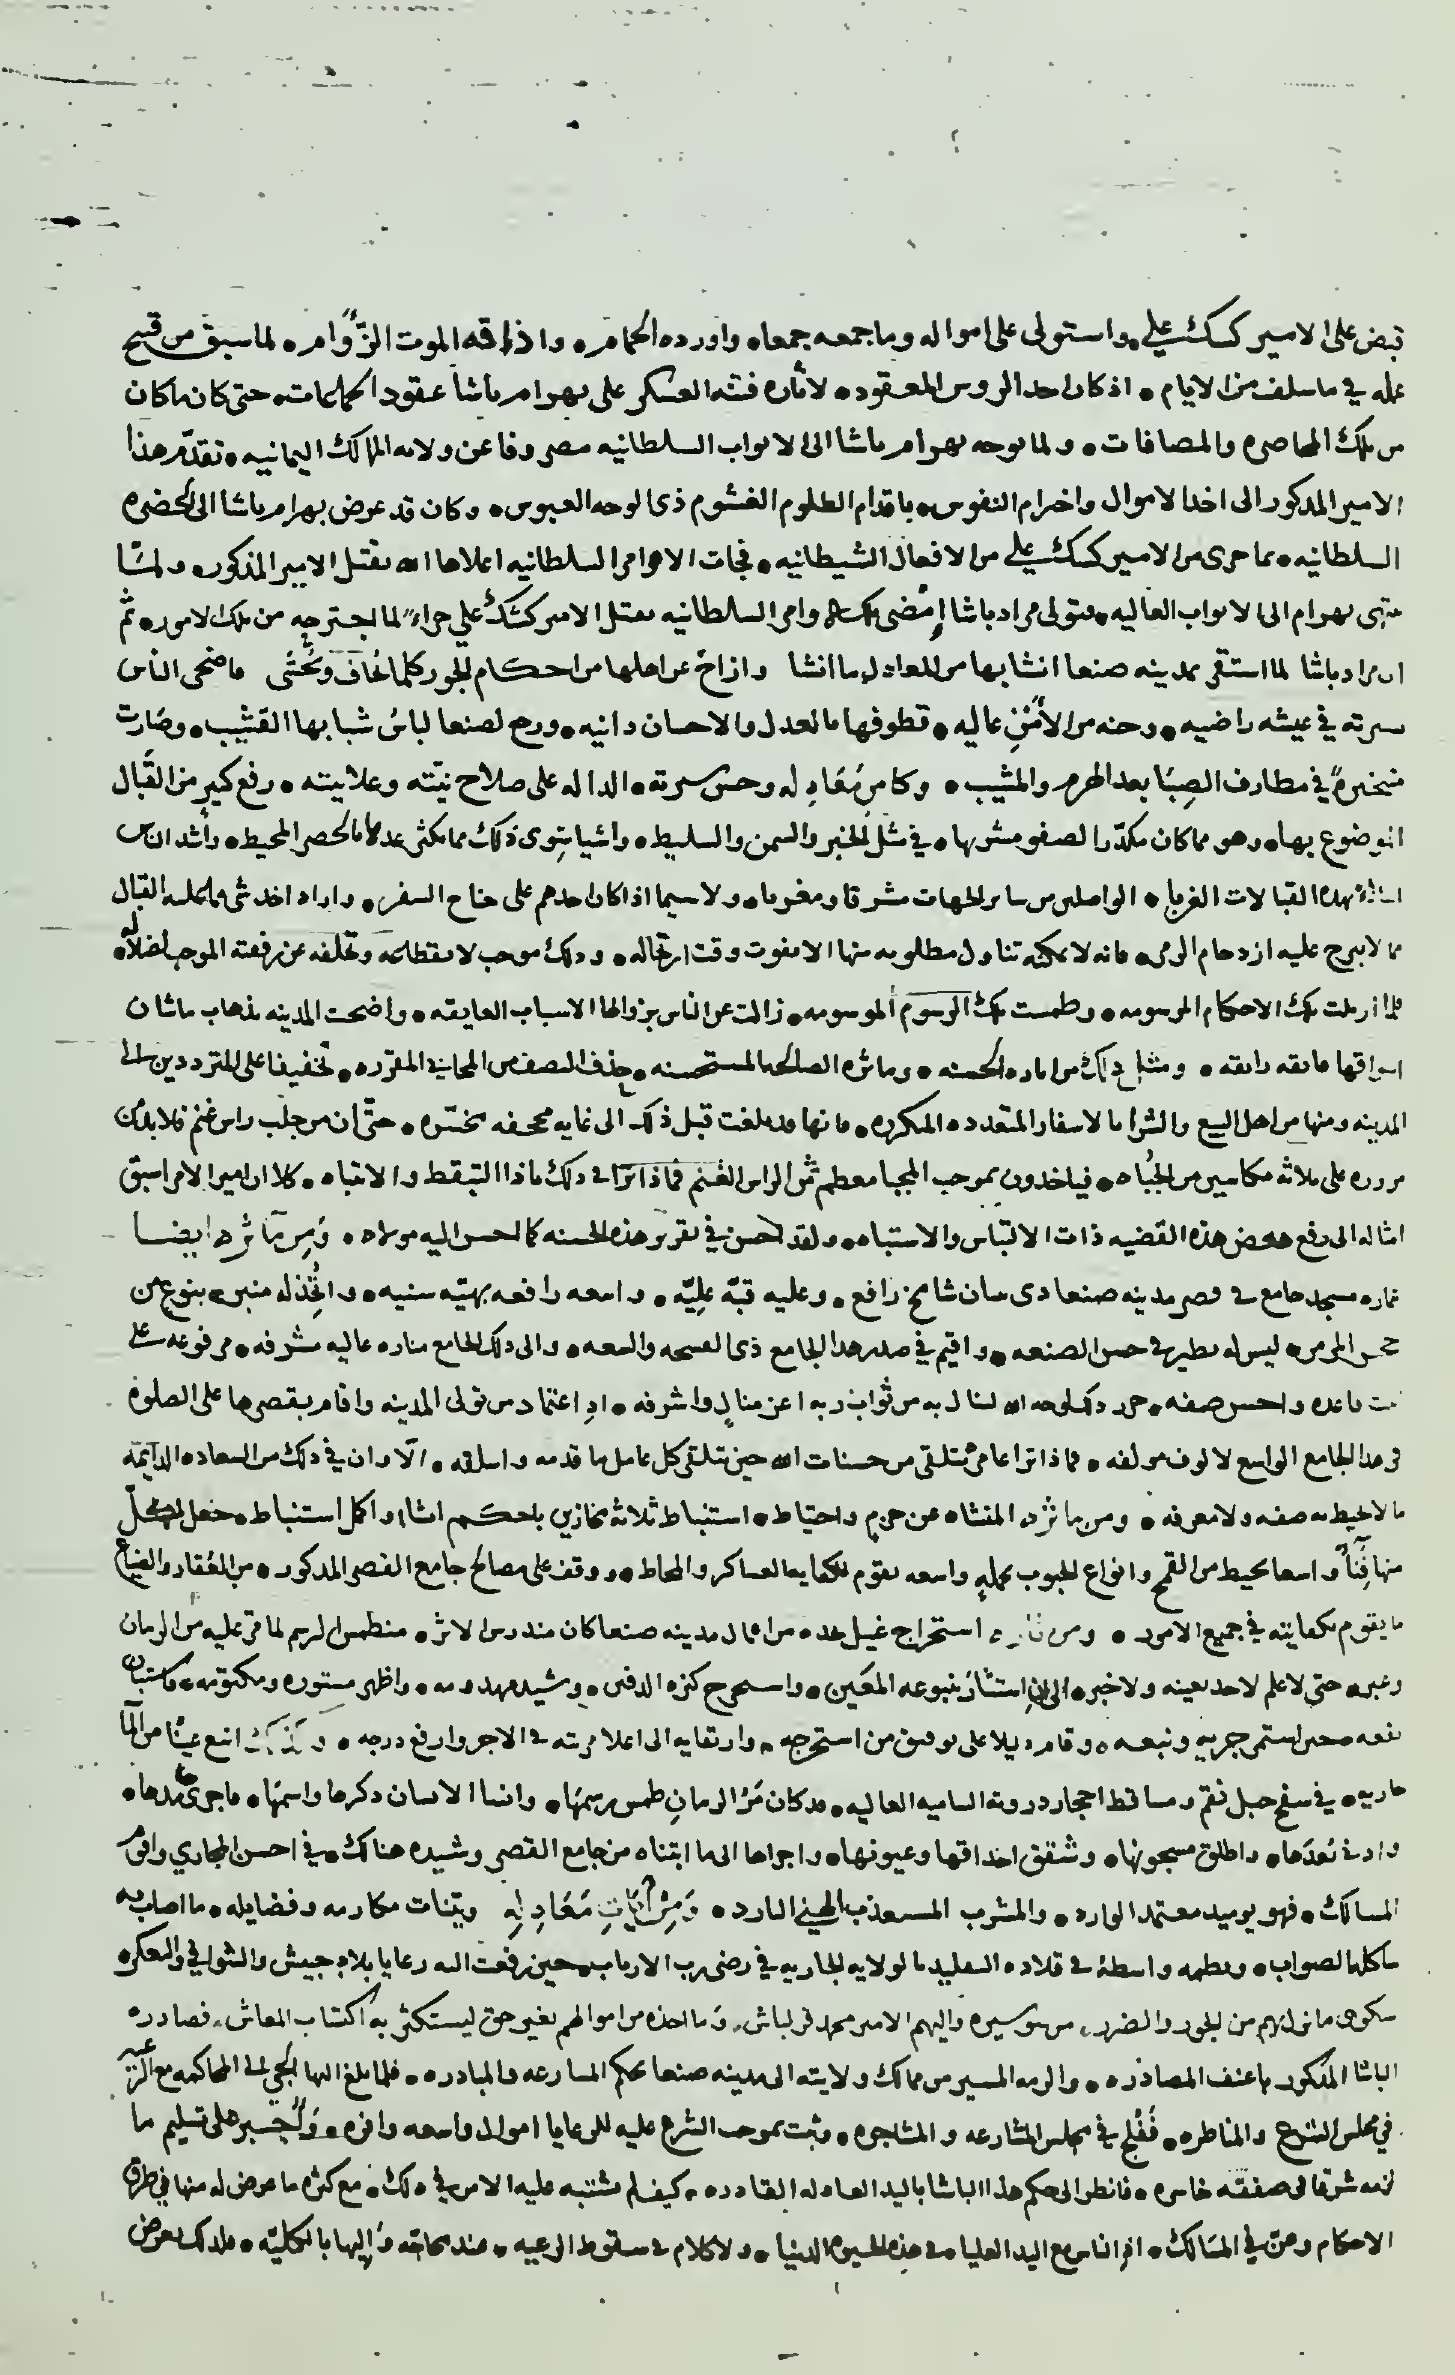 قبض على الامير كسك علي • واستولى على امواله وما جمعه جمعا • واورده الحمام • واذاقه الموت الزؤام • لما سبق من قبيح
عمله في ما سلف من الايام • اذ كان احد الروس المعقوده • لاثاره فتنه العسكر على بهرام باشا عقود المحاكمات • حتى كان ما كان
من تلك المحاصره والمصافات • ولما توجه بهرام باشا الى الابواب السلطانيه مصروفا عن ولايه الممالك اليمانيه • تقدم هذا
الامير المذكور الى اخذ الاموال واخترام النفوس • باقدام الظلوم الغشوم ذي الوجه العبوس • وكان قد عرض بهرام باشا الى الحضره
السلطانيه • بما جرى من الامير كسك علي من الافعال الشيطانيه • فجات الاوامر السلطانيه اعلاها الله بقتل الامير المذكور • ولمّا
انتهى بهرام الى الابواب العاليه • وتولى مراد باشا إمضى تلك الاوامر السلطانيه بقتل الامير كسك علي جزاءً لما اجترحه من تلك الامور • ثم
ان مراد باشا لما استقر بمدينه صنعا انشا بها من المعادل ما انشا وازاح عن اهلها من احكام الجور كلما يُخاف ويُخشى فاضحى الناس
بسيرته في عيشه راضيه • وجنه من الأمن عاليه • قطوفها بالعدل والاحسان دانيه • ورجع لصنعا لباسُ شبابها القشيب • وصارت
متبخترةً في مطارف الصِبَا بعد الهرم والمشيب • وكان من مَعَادِله وحسن سيرته • الداله على صلاح نيّته وعلانيته • رفع كثيرٍ من القَبال
الموضوع بها • وهو مما كان مكدّرا لصفو مشربها • في مثل الخبز والسمن والسليط • واشيا سِوى ذلك مما يكثر عدها بالحصر المحيط • واشد الناس
بهذه القبالات الغربا • الواصلين من ساير الجهات مشرقا ومغربا • ولا سيما اذا كان احدهم على جناح السفر • واراد اخذ شي مما عليه القبال
مما لا يبرح عليه ازدحام الزمر • فانه لا يمكنه تناول مطلوبه منها الا بفوت وقت ارتحاله • وذلك موجب لانقطاعه وتخلفه عن رفقته الموجب لضلاله
فلما ازيلت تلك الاحكام المرسومه • وطمست تلك الرسوم الموسومه • زالت عن الناس بزوالها الاسباب العايقه • واضحت المدينه بذهاب ما شان
اسواقها فايقه رايقه • ومثل ذلك من اثاره الحسنه • وماثره الصالحه المستحسنه • حذف النصف من المجابي المقرره • تخفيفا على المترددين الى
المدينه ومنها من اهل البيع والشرا بالاسفار المتعدده المكرره • فانها قد بلغت قبل ذلك الى غايه مجحفه مخسّره • حتّى ان من جلب راس غنم فلا بد من
مروره على ثلاثه مكاسين من الجُباه • فياخذون بموجب المجبا معظم ثمن الراس الغنم فماذا ترا في ذلك ماذا التيقظ والانتباه • كلا ان امير الامرا سبق
امثاله الى رفع بعض هذه القضيه ذات الالتباس والاشتباه • ولقد احسن في تقرير هذه الحسنه كما احسن اليه مولاه • ومن مآثره ايضا
عماره مسجد جامع في قصر مدينه صنعا ذي بنيان شامخ رافع • وعليه قبّه عليّه • واسعه رافعه بهيّه سنيه • واتُّخذ له منبر • بنوع من
حجر المرمر • ليس له نظير في حسن الصنعه • واقيم في صدر هذا الجامع ذي الفسحه والسعه • والى ذلك الجامع مناره عاليه مشرفه • مرفوعه على
قاعده واحسن صفه • حرر ذلك لوجه الله لينال به من ثواب ربه اعز منالٍ واشرفه • اذ اعتماد من تولى المدينه واقام بقصرها على الصلوة
في هذا الجامع الواسع لالوف مولفه • فماذا ترا عامره يتلقى من حسنات الله حين يتلقى كل عامل ما قدمه واسلفه • الا وان في ذلك من السعاده الدايمه
ما لا يحيط به صفه ولا معرفه • ومن ماثره المنشاه عن حزم واحتياط • استنباط ثلاثه مخازين باحكم انشا واكمل استنباط • جعل لكل
منها فِنَاً واسعا يحيط من القمح وانواع الحبوب بجملهٍ واسعه تقوم بكفايه العساكر والمحاط • ووقف على مصالح جامع القصر المذكور • من العُقار والضياع
ما يقوم بكفايته في جميع الامور • ومن ماثره استخراج غيل عده من اعمال مدينه صنعا كان مندرس الاثر • منطمس الرسم لما مرّ عليه من الزمان
وغبر • حتى لا علم لاحد بعينه ولا خبر • الى ان استثار ينبوعه المَعين • واستخرج كنزه الدفين • وشيد مهدومه • واظهر مستوره ومكتومه • فاستبان
نفعه حين استمر جريه ونبعه • وقام دليلا على توفيق من استخرجه • وارتقايه الى اعلا مرتبه في الاجر وارفع درجه • وكذلك انبع عينًا من الما
جاريه • في سفح جبل نقم ومساقط احجار ذروته الساميه العاليه • قد كان مَرُّ الزمانِ طمس رسمَها • وانسا الانسان ذكرها واسمَها • فاجرى ماها
وادنى بُعدَها • واطلق مسجونها • وشقق احداقها وعيونها • واجراها الى ما ابتناه من جامع القصر وشيده هنالك • في احسن المجاري واقوم
المسالك • فهو يوميذ معتمد الوارد • والمشرب المستعذب الهني البارد • ومن آيات مَعَادِلِه وبيّنات مكارمه وفضايله • ما اصاب به
شاكله الصواب • ونظمه واسطهً في قلاده التقليد بالولايه الجاريه في رضى رب الارباب • حين رفعت اليه رعايا بلاد جيش والشوافي والعكره
شكوى ما نزل بهم من الجور والضرر • من سوسيره واليهم الامير محمد قزلباش • وما اخذه من اموالهم بغير حق ليستكثر به اكتساب المعاش • فصادره
الباشا المذكور باعنف المصادره • والزمه المسير من مماك ولايته الى مدينه صنعا بحكم المسارعه والمبادره • فلما بلغ اليها الجي الى المحاكمه مع الرعيه
في مجلس الشرع والمناظره • فَفُلِج في مجلس المشارعه والمشاجره • وثبت بموجب الشرع عليه للرعايا اموال واسعه وافره • وأُجبر على تسليم ما
لزمه شرعا في صفقه خاسره • فانظر الى حكم هذا الباشا باليد العادله القادره • كيف لم يشتبه عليه الامر في ذلك • مع كثره ما عرض له منها في طرق
الاحكام وعنّ في المسالك • اذ الناس مع اليد العليا • في هذه الحيوة الدنيا • ولا كلام في سقوط الرعيه • عند محاققه واليها بالكليّه • فلذلك تعرض